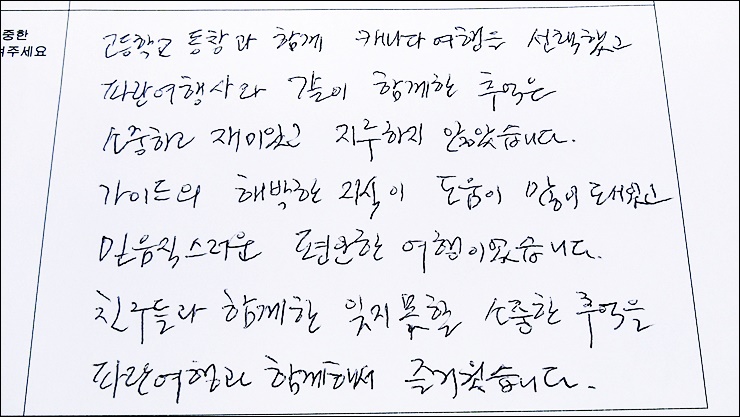 중한
여주세요
고등학교 동창과 함께 캐나다여행을 선택했고
파란여행사와 같이 함께한 추억은
소중하고 재미있고 지루하지 않았습니다.
가이드의 해박한 지식이 도움이 많이 되었고
믿음직스러운 편안한 여행이었습니다.
친구들과 함께한 잊지못할 소중한 추억을
파란여행과 함께해서 즐거웠습니다.